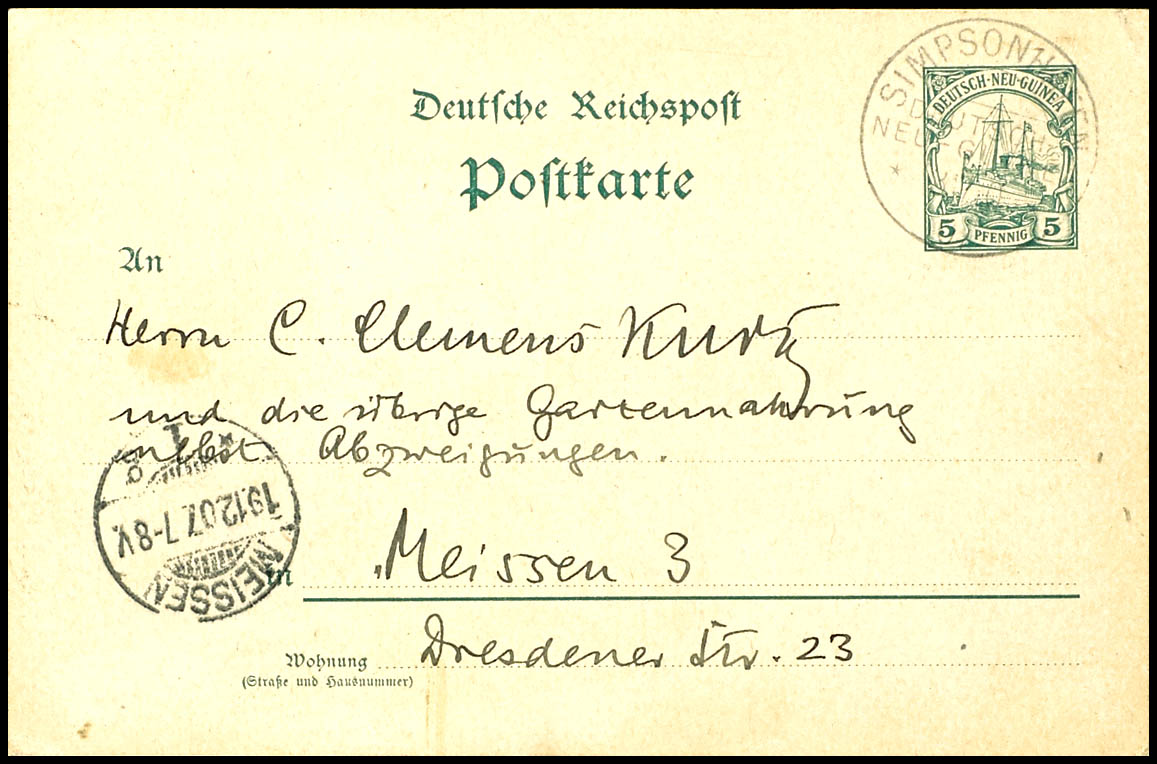 Deutsche Reichspost
Postkarte
SIMPSONHAFEN
DEUTSCH-
NEU-GUINEA
DEUTSCH-NEU-GUINEA
5 PFENNIG 5
An
Herrn C. Clemens Kurtz
und die übrige Gartennahrung
nebst Abzweigungen.
in Meissen 3
Wohnung Dresdener Str. 23
(Straße und Hausnummer)
MEISSEN
19.12.07. 7-8 V.
1